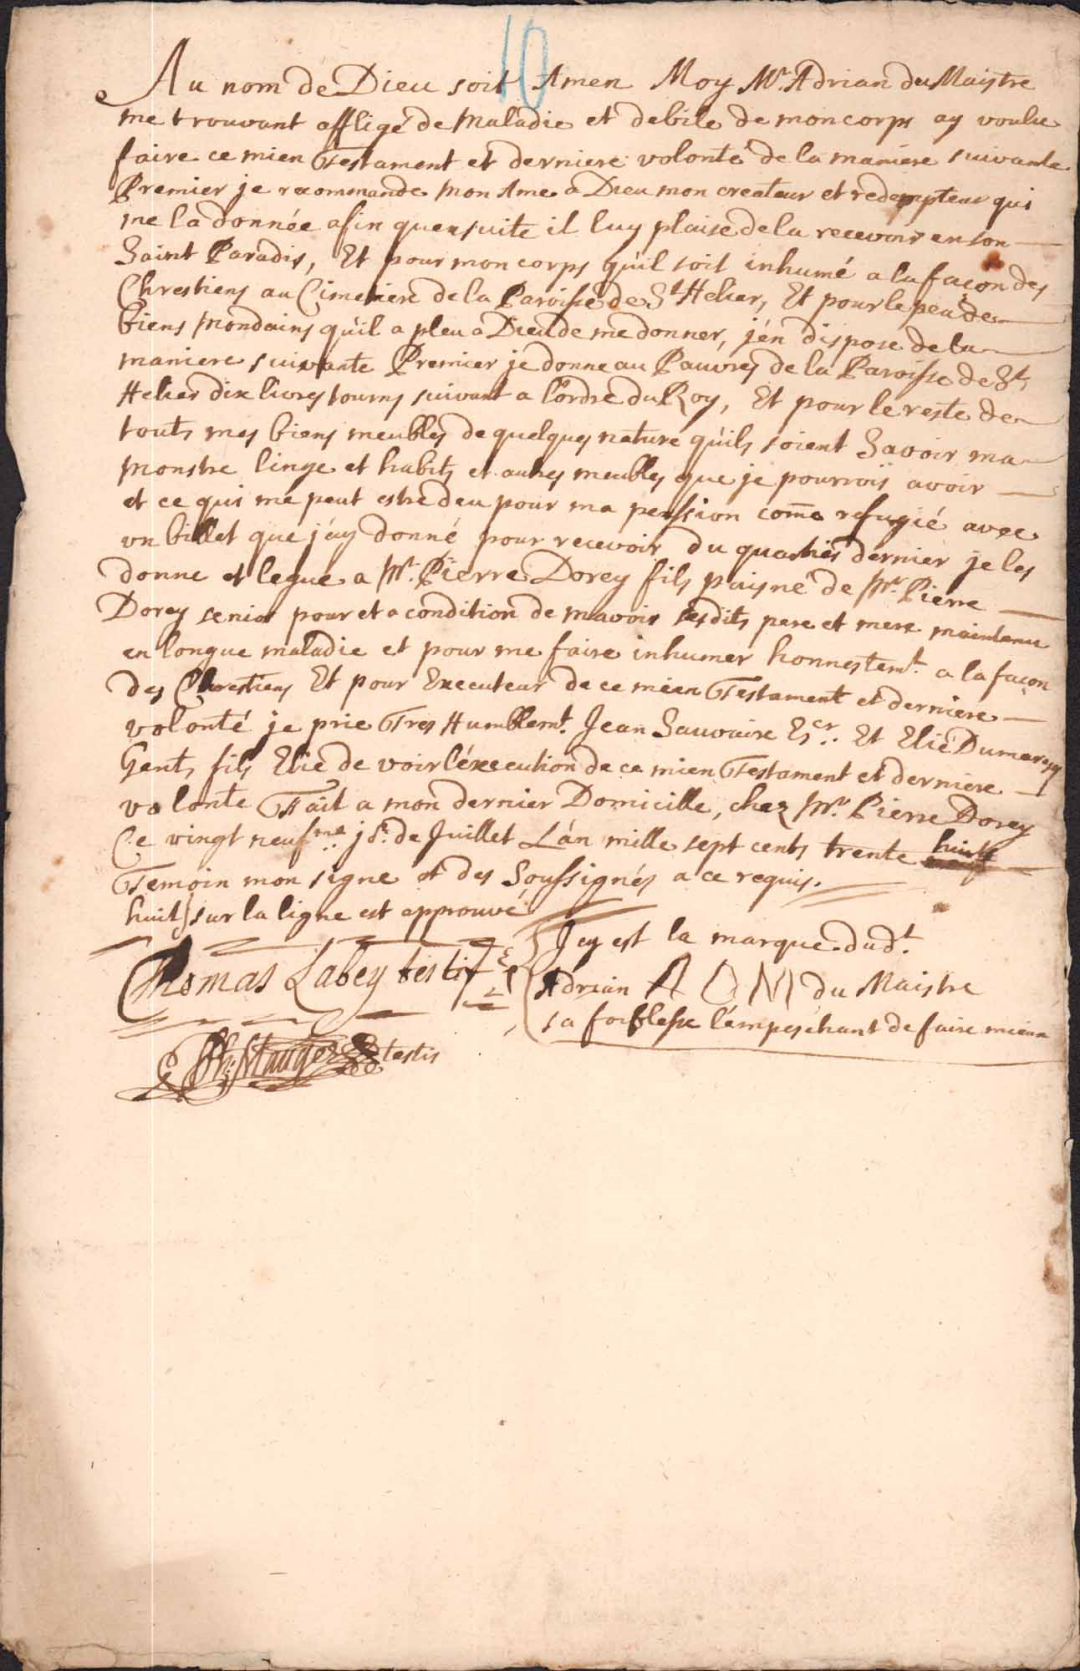 10
Au nom de Dieu soit Amen Moy Mr. Adrian du Maistre
me trouvant affligé de Maladie et debile de mon corps ay voulu
faire ce mien Testament et derniere volonté de la maniere suivante
Premier je recommande mon Ame a Dieu mon createur et redempteur qui
me la donnée afin qu'ensuite il luy plaise de la recevoir en son
Saint Paradis, Et pour mon corps qu'il soit inhumé a la façon des
Chrestiens au Cimetiere de la Paroisse de St Helier, Et pour le peu de
biens Mondains qu'il a pleu a Dieu de me donner, j'én dispose de la
maniere suivante Premier je donne au Pauvres de la Paroisse de St
Helier dix livres tourns suivant a l'ordre du Roy, Et pour le reste de
touts mes biens meubles de quelques nature qu'ils soient Savoir ma
Monstre linge et habits et autres meubles que je pourrois avoir
et ce qui me peut estre deu pour ma pension come refugié avec
un billet que j'ay donné pour recevoir du quartier dernier je les
donne et legue a Mr. Pierre Dorey fils puisné de Mr. Pierre
Dorey senior pour et a condition de m'avoir sesdits pere et mere maintenu
en longue maladie et pour me faire inhumer honnestemt. a la façon
des Chrestiens Et pour Executeur de ce mien Testament et derniere
volonté je prie Tres Humblemt. Jean Sauvaire Escr. Et Elie Dumaresq
Gent. fils Elie de voir l'éxecution de ce mien Testament et derniere
volonte Fait a mon dernier Domicille, chez Mr. Pierre Dorey
Ce vingt neufme jr. de Juillet L'án mille sept cents trente huit
Temoin mon signe et des Soussignés a ce requis.
huit sur la ligne est approuvé
Icy est la marque dudt.
Adrian A D M du Maistre
sa foiblesse l'empeschant de faire mieux
Thomas Labey testis
Ph: Mauger testis